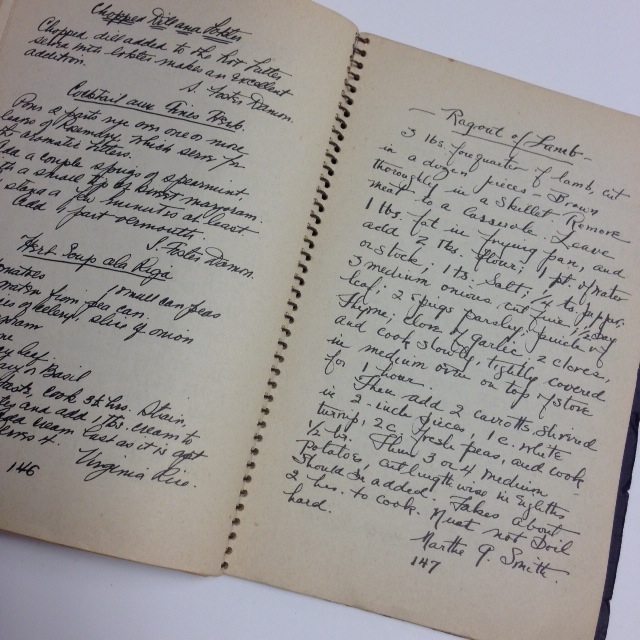 Chopped Dill and Lobster
Chopped dill added to the hot butter
served with lobster makes an excellent
addition.
S. Foster Damon.
Cocktail aux Fines Herb.
Pour 2 parts rye on one or more
of Rosemary, which serve for
aromatic bitters.
a couple sprigs of spearmint
a small tip of sweet marjoram.
a few minutes at least
Add 1 part vermouth.
S. Foster Damon.
Herb Soup a la Riga
1 small can peas
from pea can.
of celery, slice of onion
Basil
cook 3/4 hr. Strain,
and add
cream just as it is
146
Virginia Rice.
- Ragout of Lamb -
3 lbs. forequarter of lamb, cut
in a dozen pieces - Brown
thoroughly in a skillet. Remove
meat to a casserole. Leave
1 tbs. fat in frying pan, and
add 2 tbs. flour, 1 pt. of water
or stock, 1 ts. salt, 1/4 ts. pepper,
3 medium onions cut fine, 1 bay
leaf, 2 sprigs parsley, pinch of
thyme, clove of garlic, 2 cloves,
and cook slowly, tightly covered
in medium oven or on top of stove
for 1 hour.
Then add 2 carrots shivred
in 2 inch pieces, 1 c. white
turnip, 2 c. fresh peas, and cook
1/2 hr. Then 3 or 4 medium
potatoes, cut lengthwise in eighths
should be added. Takes about
2 hrs. to cook. Must not boil
hard.
Martha G. Smith.
147